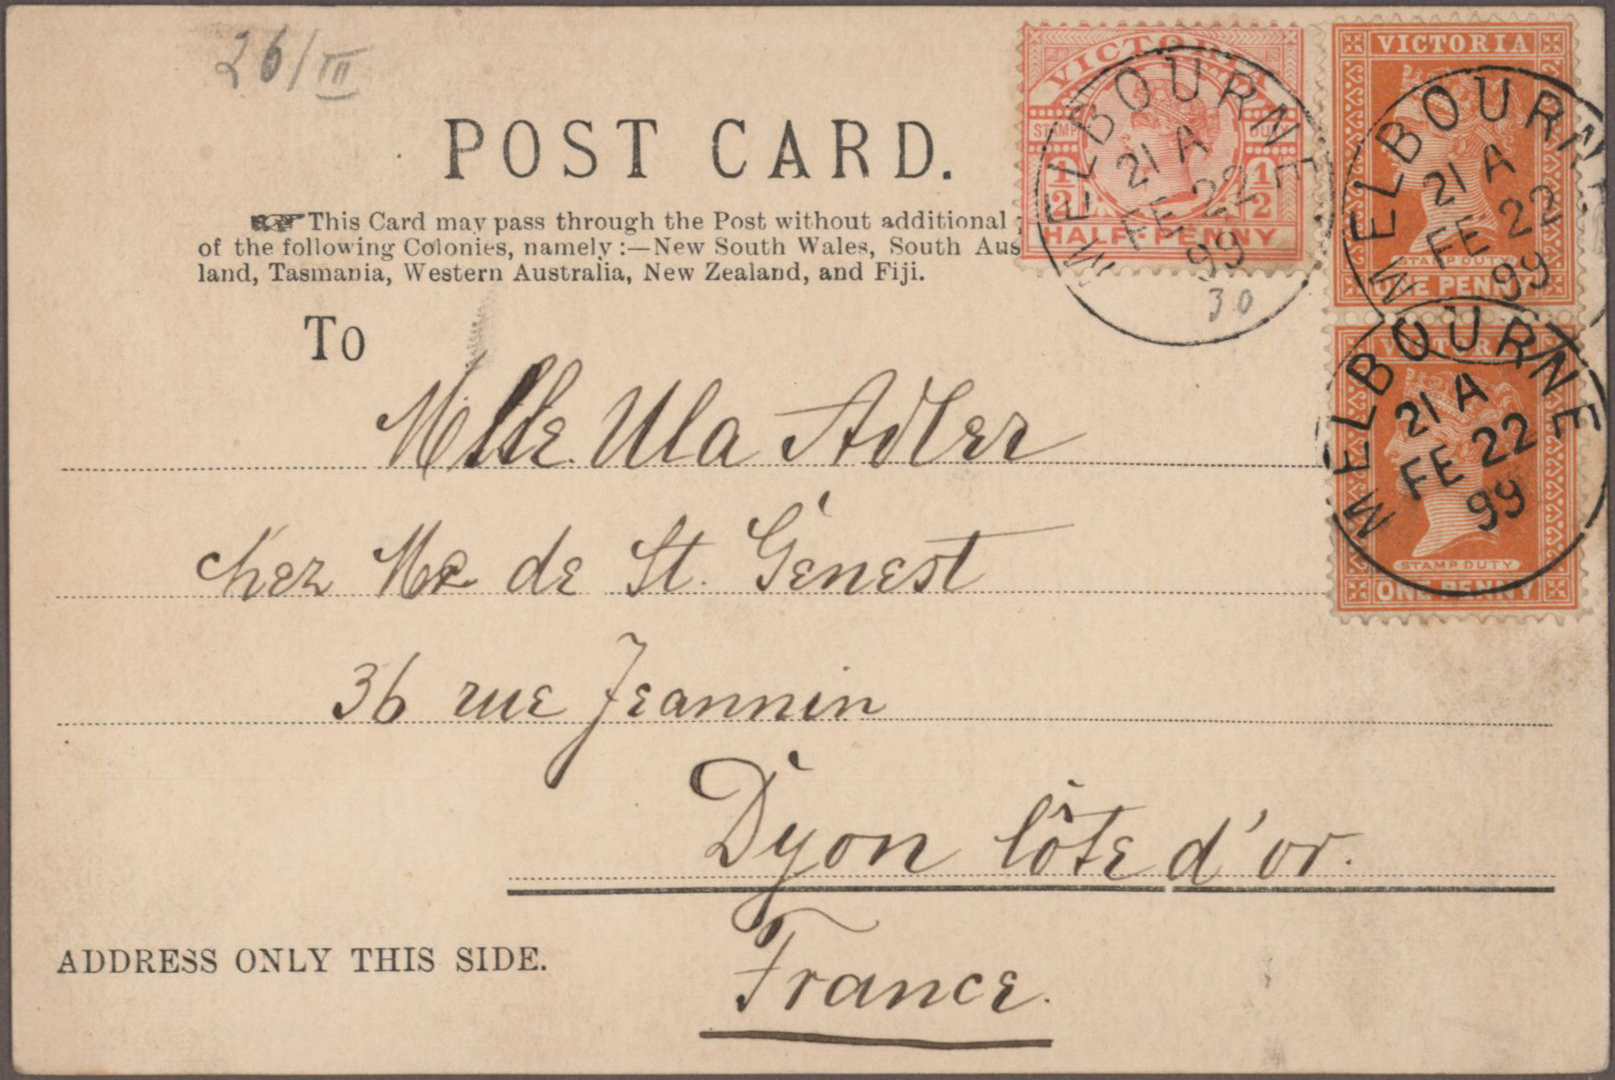 26/III
POST CARD.
This Card may pass through the Post without additional
of the following Colonies, namely :—New South Wales, South Aus
land, Tasmania, Western Australia, New Zealand, and Fiji.
To
Mlle Ula Adler
chez Mr de St. Génest
36 rue Jeannin
Dyon Côte d'or.
France.
ADDRESS ONLY THIS SIDE.
VICTORIA
STAMP DUTY
1/2 1/2
HALFPENNY
MELBOURNE
21 A
FE 22
99
30
VICTORIA
STAMP DUTY
ONE PENNY
MELBOURNE
21 A
FE 22
99
VICTORIA
STAMP DUTY
ONE PENNY
MELBOURNE
21 A
FE 22
99